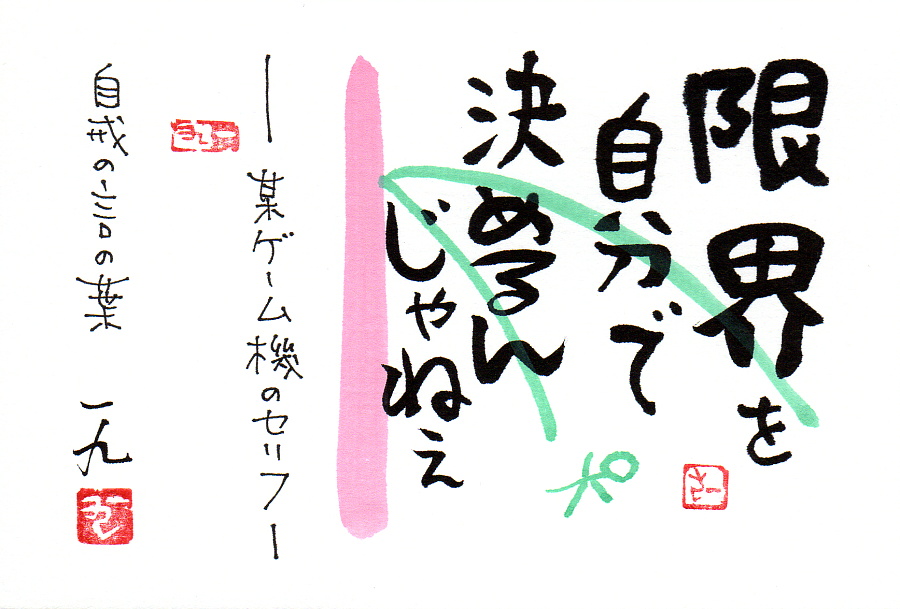 限界を
自分で
決めるん
じゃねぇ
― 某ゲーム機のセリフ ―
自戒の言の葉 一九